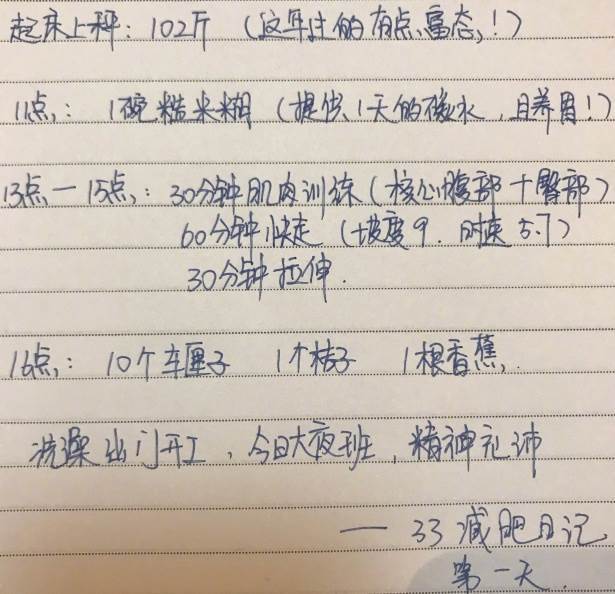 起床上秤：102斤（这年过的有点富态，！）
11点，：1碗糙米糊（提供1天的碳水，且养胃！）
13点一15点，：30分钟肌肉训练（核心腹部+臀部）
60分钟快走（坡度9．时速5.7）
30分钟拉伸．
16点，：10个车厘子 1个桔子 1根香蕉，．
洗澡出门开工，今日大夜班，精神充沛
— 33减肥日记
第一天．